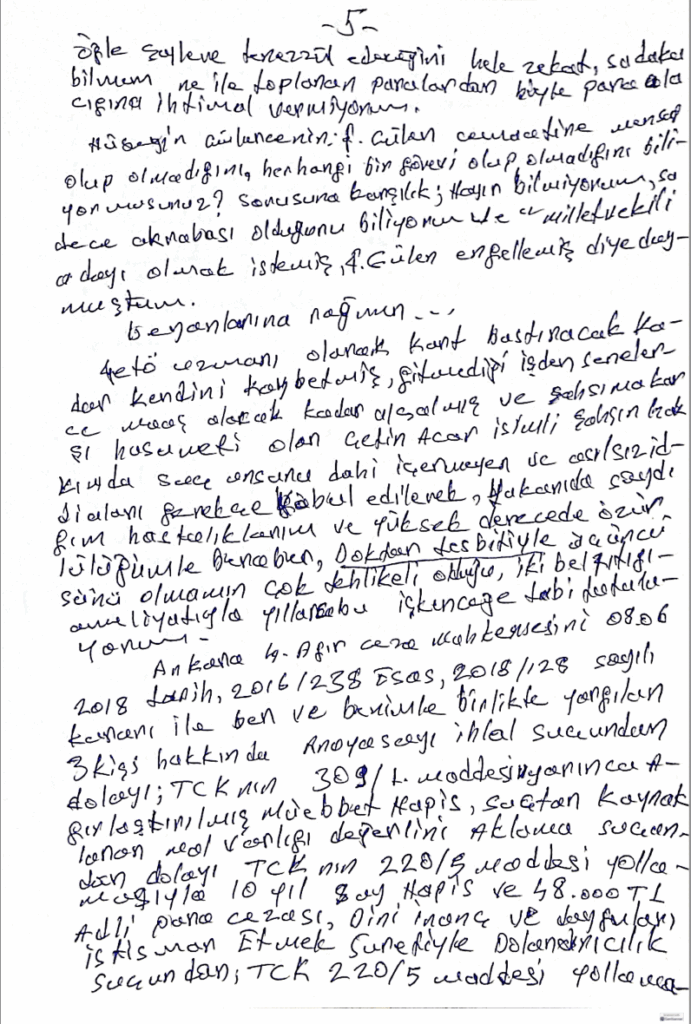 -5-
öyle şeyleve tenezzül edeceğini hele zekat, sadaka
bilmem ne ile toplanan paralardan böyle para ala
cığına ihtimal vermiyorum.
Hüseyin Gülencenin; f. Gülen cemaatine mensup
olup olmadığını, herhangi bir görevi olup olmadığını bili-
yor musunuz? sorusuna karşılık; Hayır bilmiyorum, sa
dece akrabası olduğunu biliyorum ve "milletvekili
adayı olmak istemiş, f. Gülen engellemiş diye duy-
muştum.
beyanlarına rağmen...
fetö uzmanı olarak kart bastıracak ka-
dar kendini kaybetmiş, gitmediği işden seneler-
ce maaş alacak kadar alçalmış ve şahsıma kar
şı husumeti olan Çetin Acar isimli şahsın hak
kımda suç unsuru dahi içermeyen ve asılsız id-
diaları gerekçe kabul edilerek, yukarıda saydı
ğım hastalıklarım ve yüksek derecede özür
lülüğümle beraber, Doktor tesbitiyle üçüncü
sünü olmamın çok tehlikeli olduğu, iki bel fıtığı-
ameliyatıyla yıllardır işkenceye tabi tutulu-
yorum.-
Ankara 4. Ağır ceza Mahkemesini 08.06
2018 tarih, 2016/238 Esas, 2018/128 sayılı
kararı ile ben ve benimle birlikte yargılan
3 kişi hakkında Anayasayı ihlal suçundan
dolayı; TCK nın 309/1. maddesi uyarınca A-
ğırlaştırılmış Müebbet Hapis, suçtan kaynak
lanan mal varlığı değerlini Aklama suçun-
dan dolayı TCK nın 220/5 maddesi yolla-
masıyla 10 yıl 8ay Hapis ve 48.000 TL
Adli para cezası, Dini inanç ve duyguları
istismar Etmek Suretiyle Dolandırıcılık
suçundan; TCK 220/5 maddesi yollama-